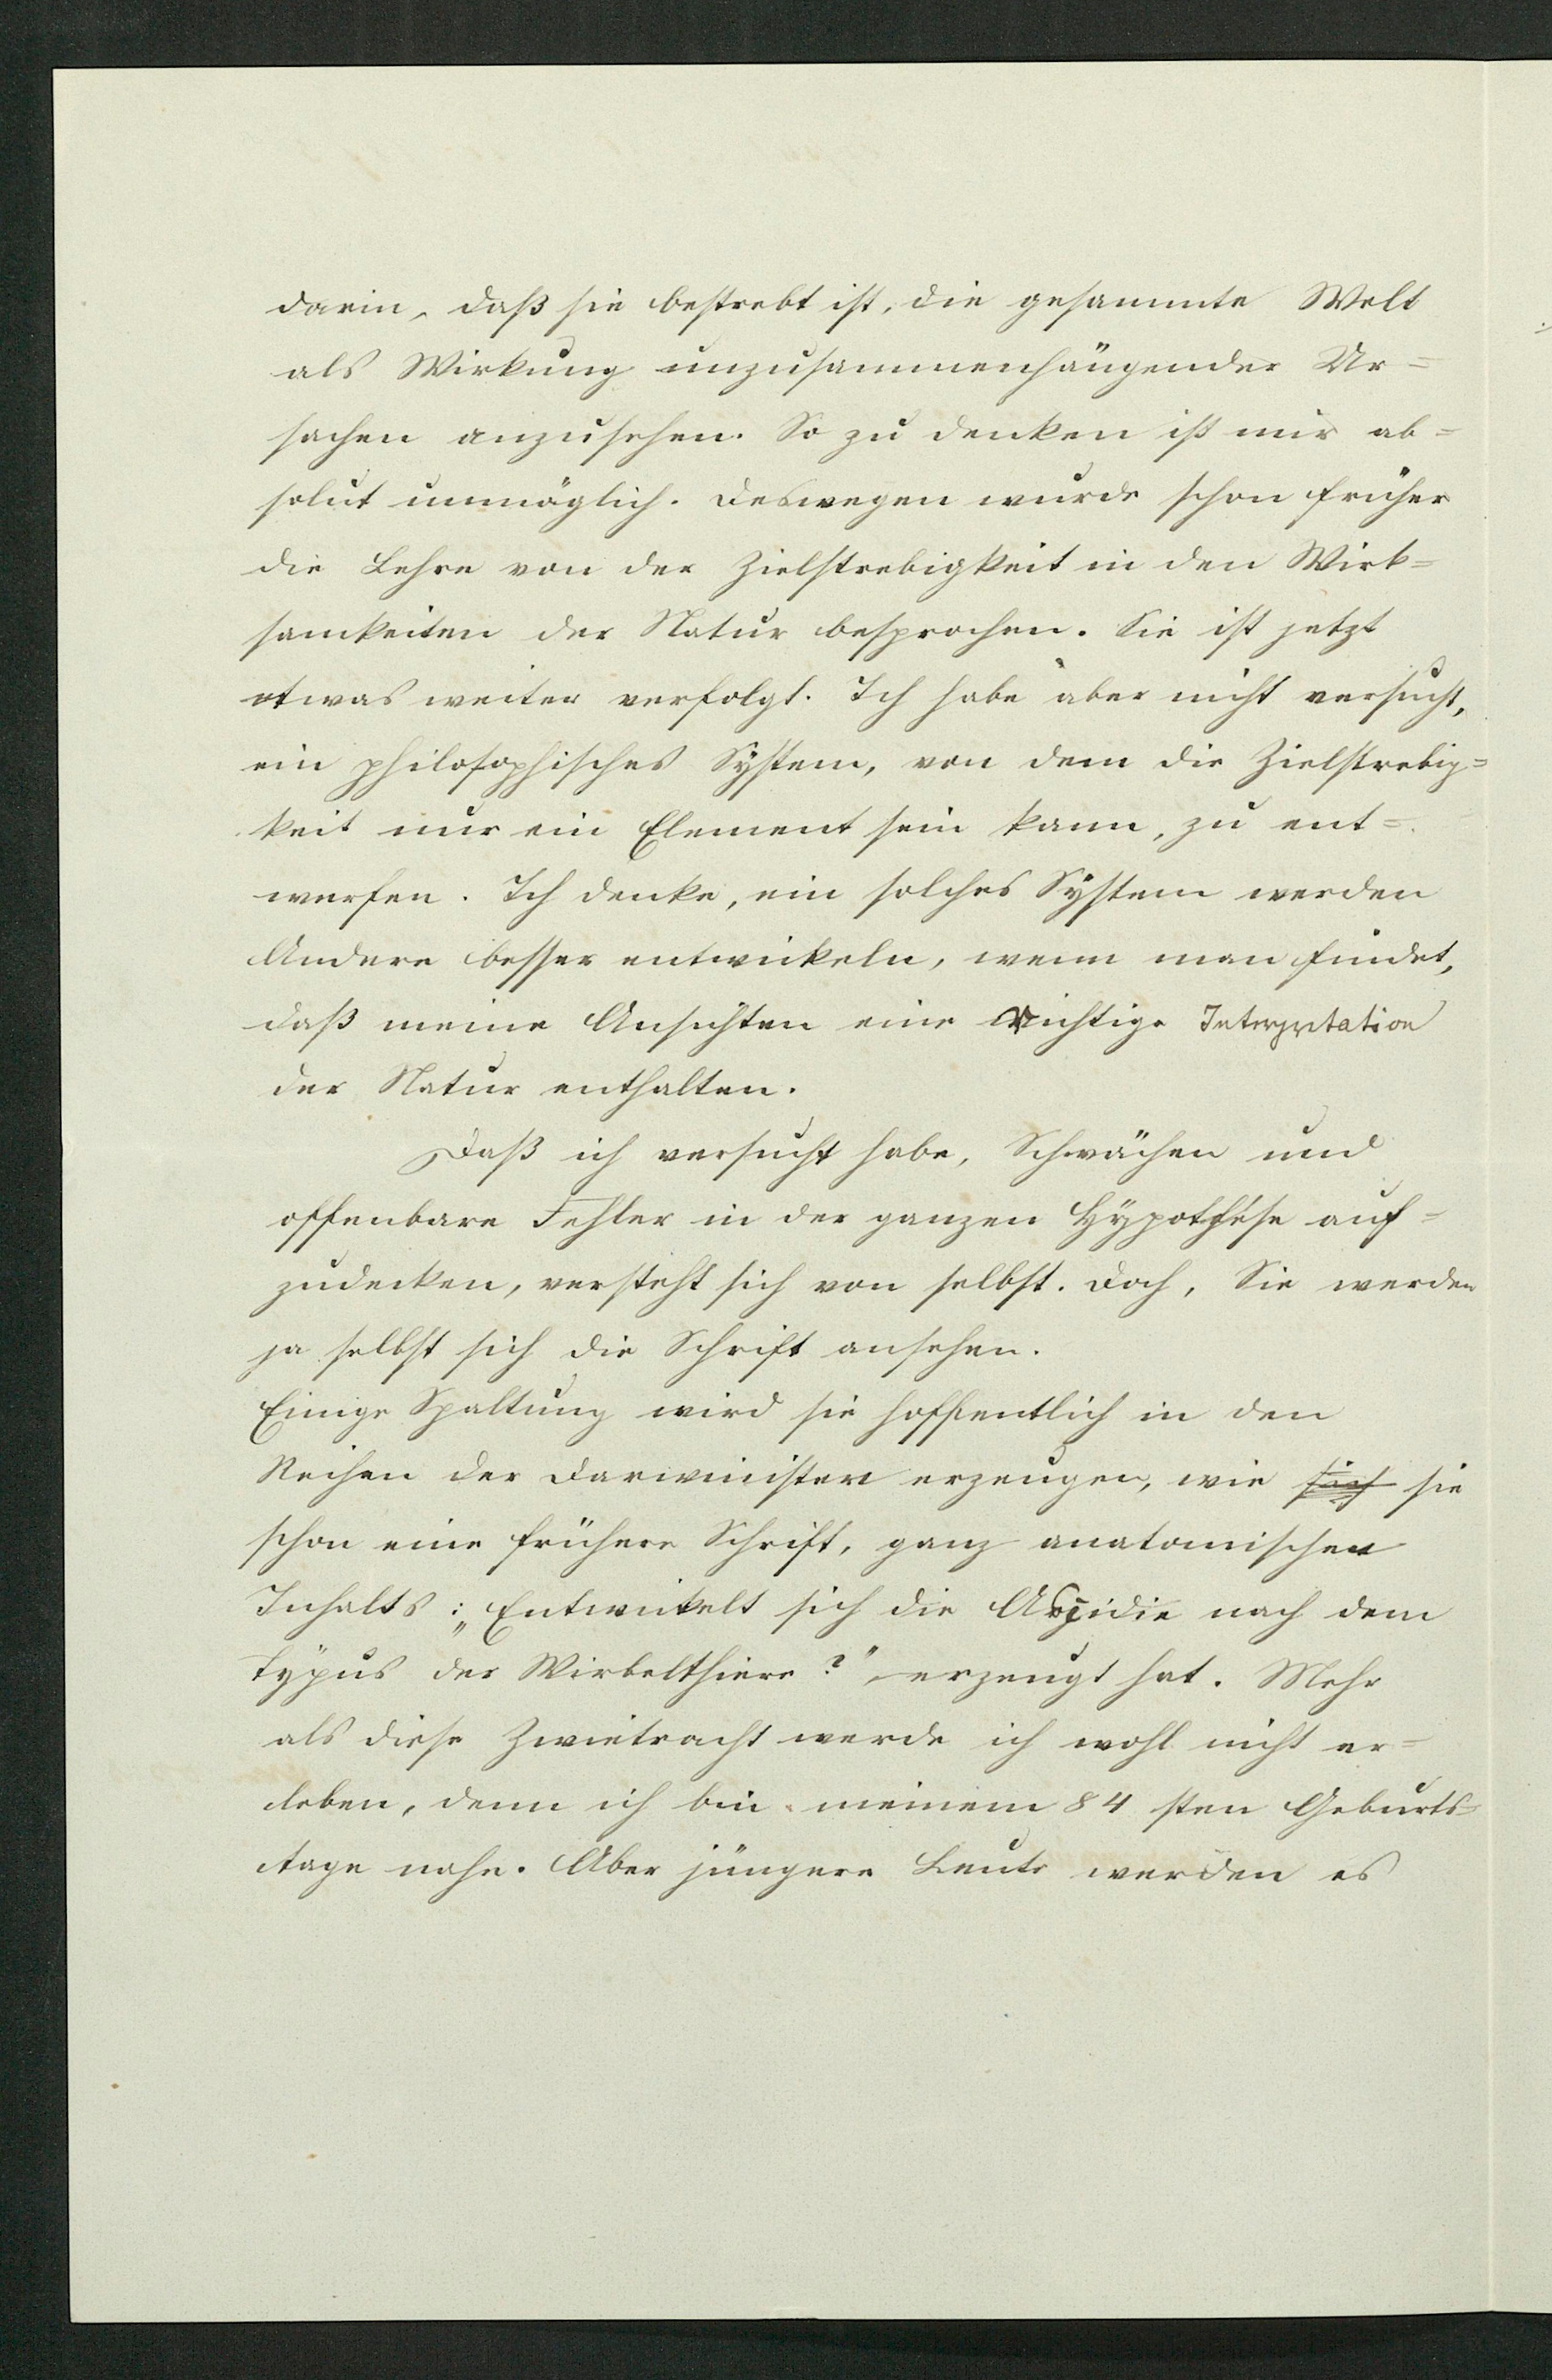 darin, daß sie bestrebt ist, die gesammte Welt
als Wirkung unzusammenhängender Ur=
sachen anzusehen. So zu denken ist mir ab=
solut unmöglich. Deswegen wurde schon früher
die Lehre von der Zielstrebigkeit in den Wirk=
samkeiten der Natur besprochen. Sie ist jetzt
etwas weiter verfolgt. Ich habe aber nicht versucht,
ein philosophisches System, von dem die Zielstrebig=
keit nur ein Element sein kann, zu ent=
werfen. Ich denke, ein solches System werden
Andere besser entwickeln, wenn man findet,
daß meine Ansichten eine richtige Interpretation
der Natur enthalten.
Daß ich versucht habe, Schwächen und
offenbare Fehler in der ganzen Hypothese auf=
zudecken, versteht sich von selbst. Doch, Sie werden
ja selbst sich die Schrift ansehen.
Einige Spaltung wird sie hoffentlich in den
Reihen der Darwinisten erzeugen, wie sich sie
schon eine frühere Schrift, ganz anatomischen
Inhalts: „Entwickelt sich die Ascidie nach dem
Typus der Wirbelthiere?" erzeugt hat. Mehr
als diese Zwietracht werde ich wohl nicht er=
leben, denn ich bin meinem 84 sten Geburts=
tage nahe. Aber jüngere Leute werden es